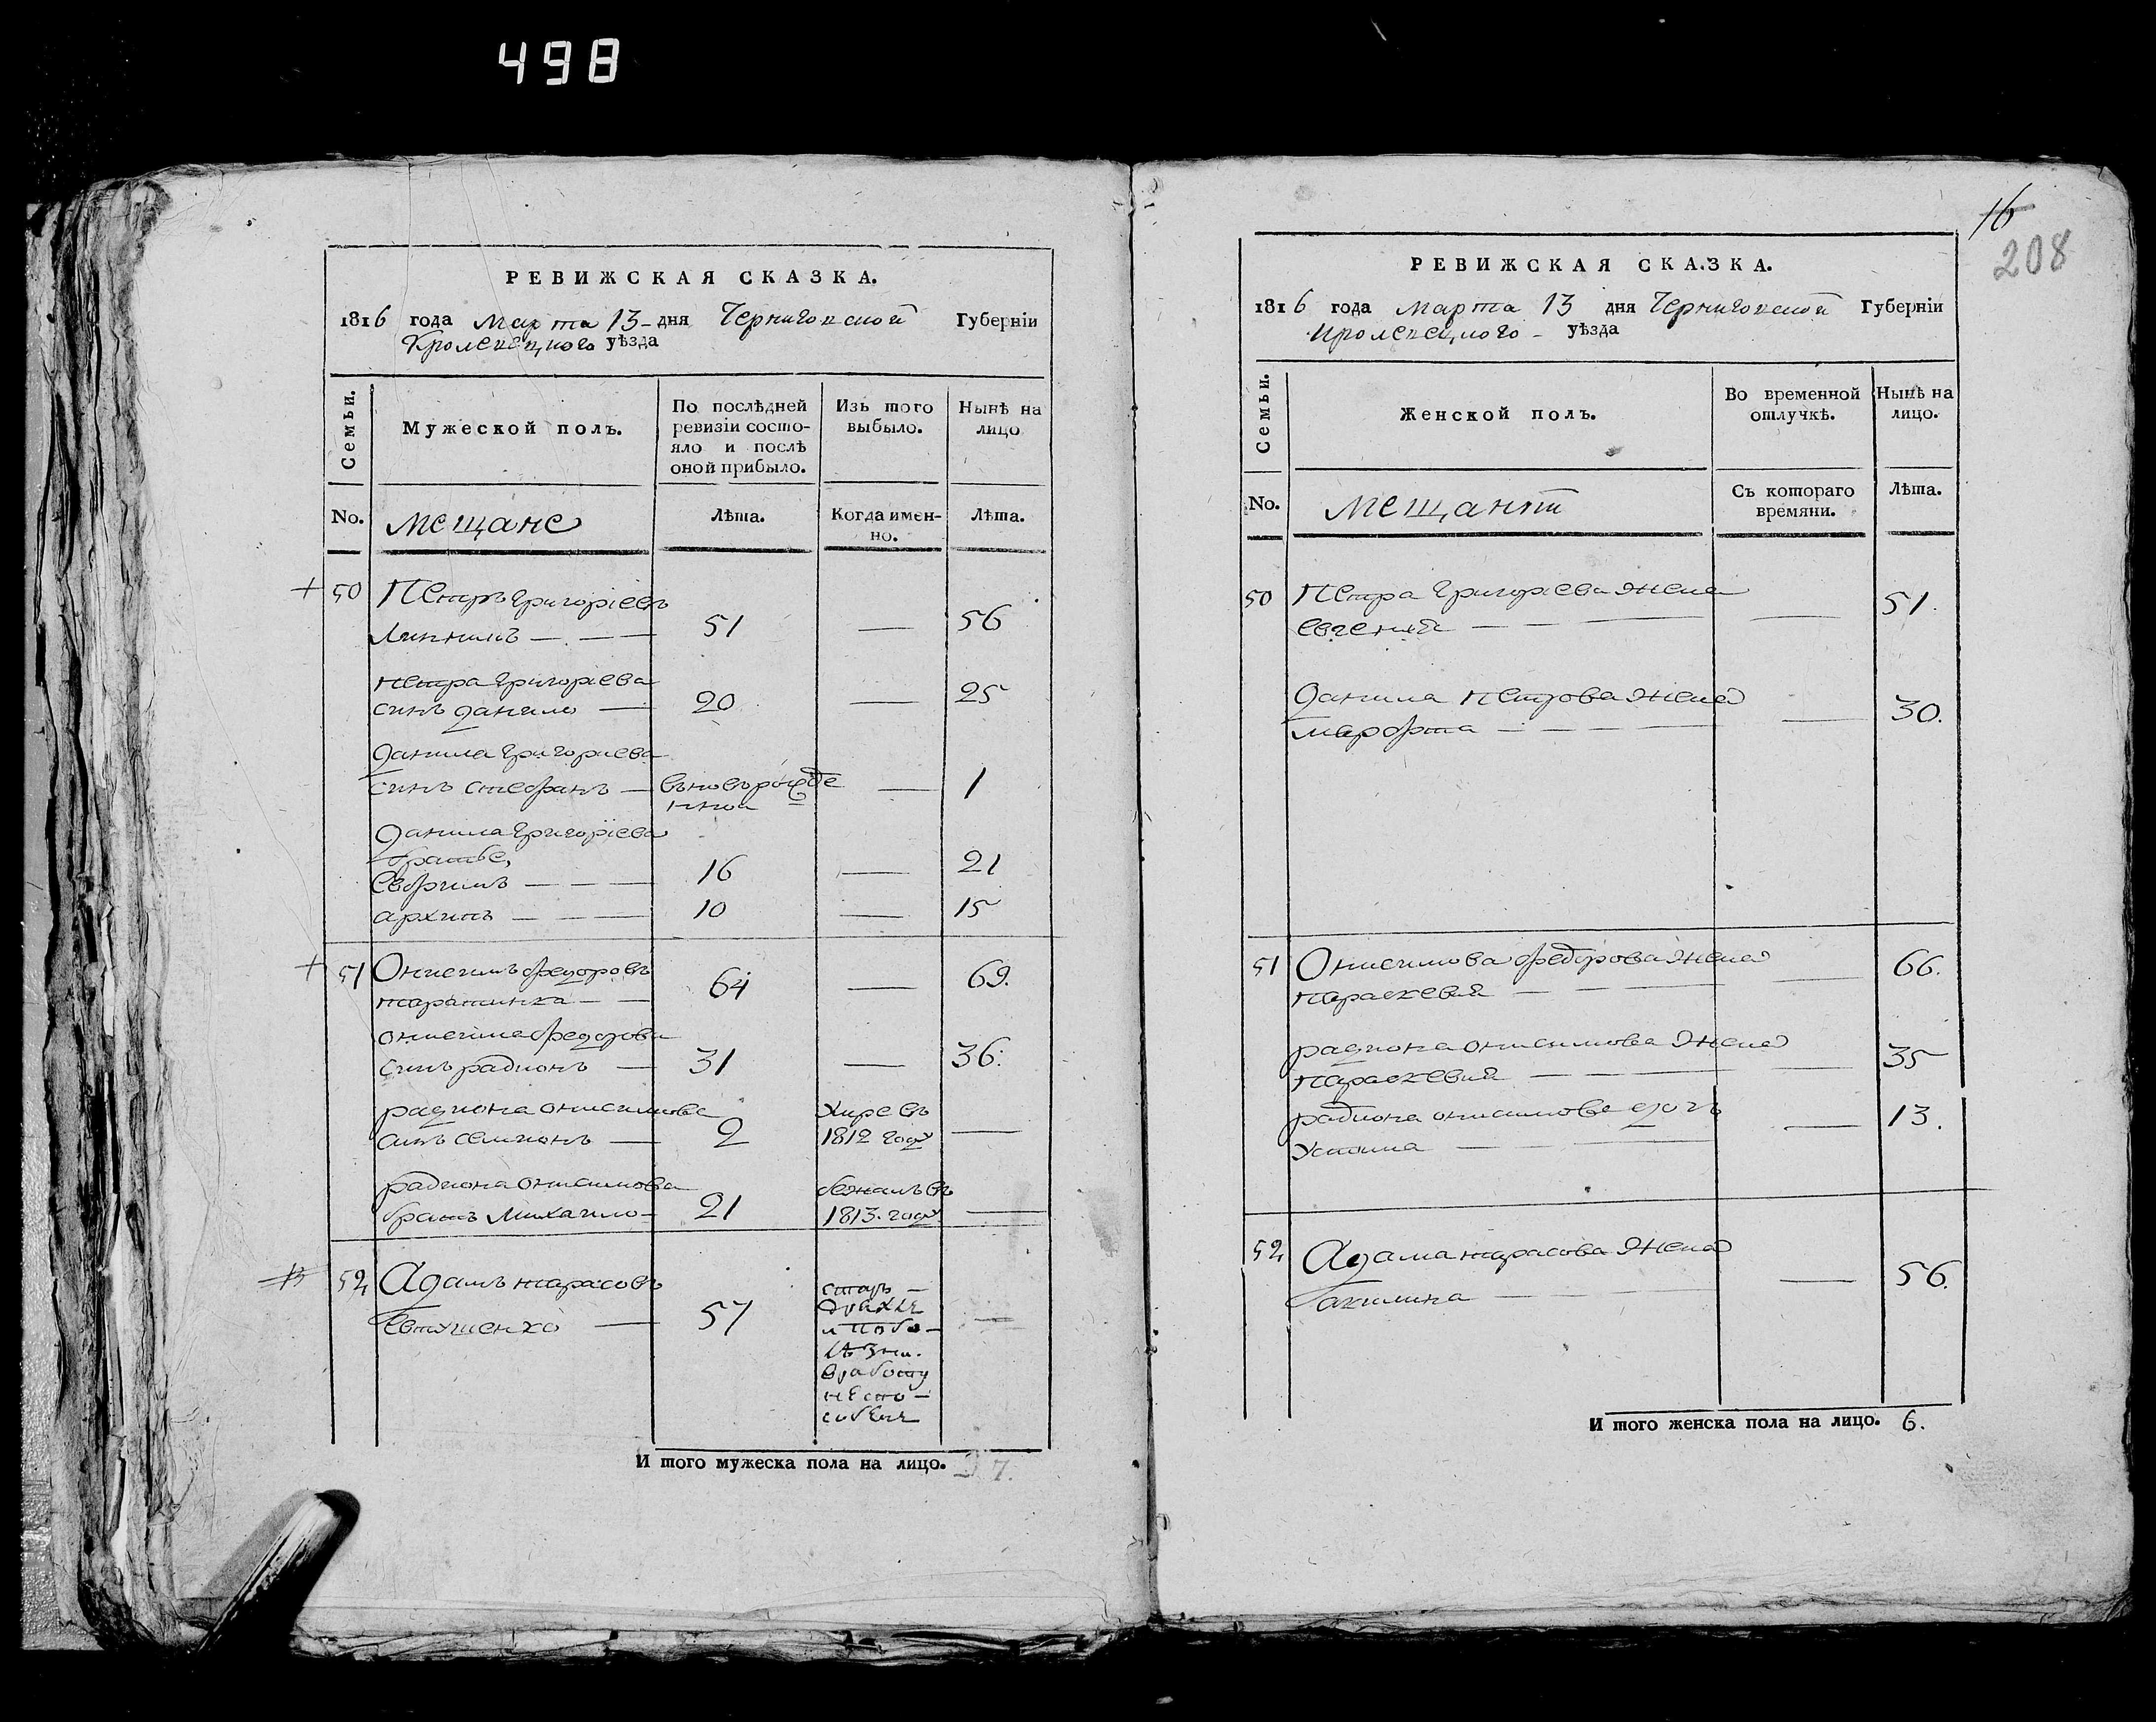 498
РЕВИЖСКАЯ СКАЗКА.
1816 года Марта 13 - дня Черниговской Губерніи
Кролевецкого уѣзда
Семьи.
Мужеской полъ.
По послѣдней
ревизіи состо-
яло и послѣ
оной прибыло.
Изъ того
выбыло.
Нынѣ на
лицо
No.
мещане
Лѣта.
Когда имен-
но.
Лѣта.
+ 50 Петръ григоріевъ
— 51 — 56
петра григоріева
синъ данило — 20 — 25
данила григориева
синъ стефанъ — вновърожде — 1
нной
данила григоріева
братье,
евфимъ — 16 — 21
архипъ — 10 — 15
+ 51 Онисимъ федоровъ
64 — 69.
онисима федорова
синъ радионъ — 31 — 36.
радиона онисимова
синъ семионъ — 2
умре въ
1812 году —
радиона онисимова
братъ михаило — 21
бежалъ въ
1813. году —
52 Адамъ тарасовъ
Евтушенко — 57 —
старъ —
дряхлъ
и побо-
лѣзни.
вработу
неспо-
собенъ
И того мужеска пола на лицо. 7.
16
208
РЕВИЖСКАЯ СКАЗКА.
1816 года марта 13 дня Черниговской Губерніи
кролевецкого - уѣзда
Семьи.
Женской полъ.
Во временной
отлучкѣ.
Нынѣ на
лицо.
No.
мещанъ
Съ котораго
времяни.
Лѣта.
50 Петра григоріева жена
евгения — — 51.
данила петрова жена
марфта — — 30.
51 Онисимова федорова жена
параскевия — — 66.
радиона онисимова жена
параскевия — — 35
радиона онисимова дочь
устина — — 13.
52 Адама тарасова жена
акилина — — 56.
И того женска пола на лицо. 6.